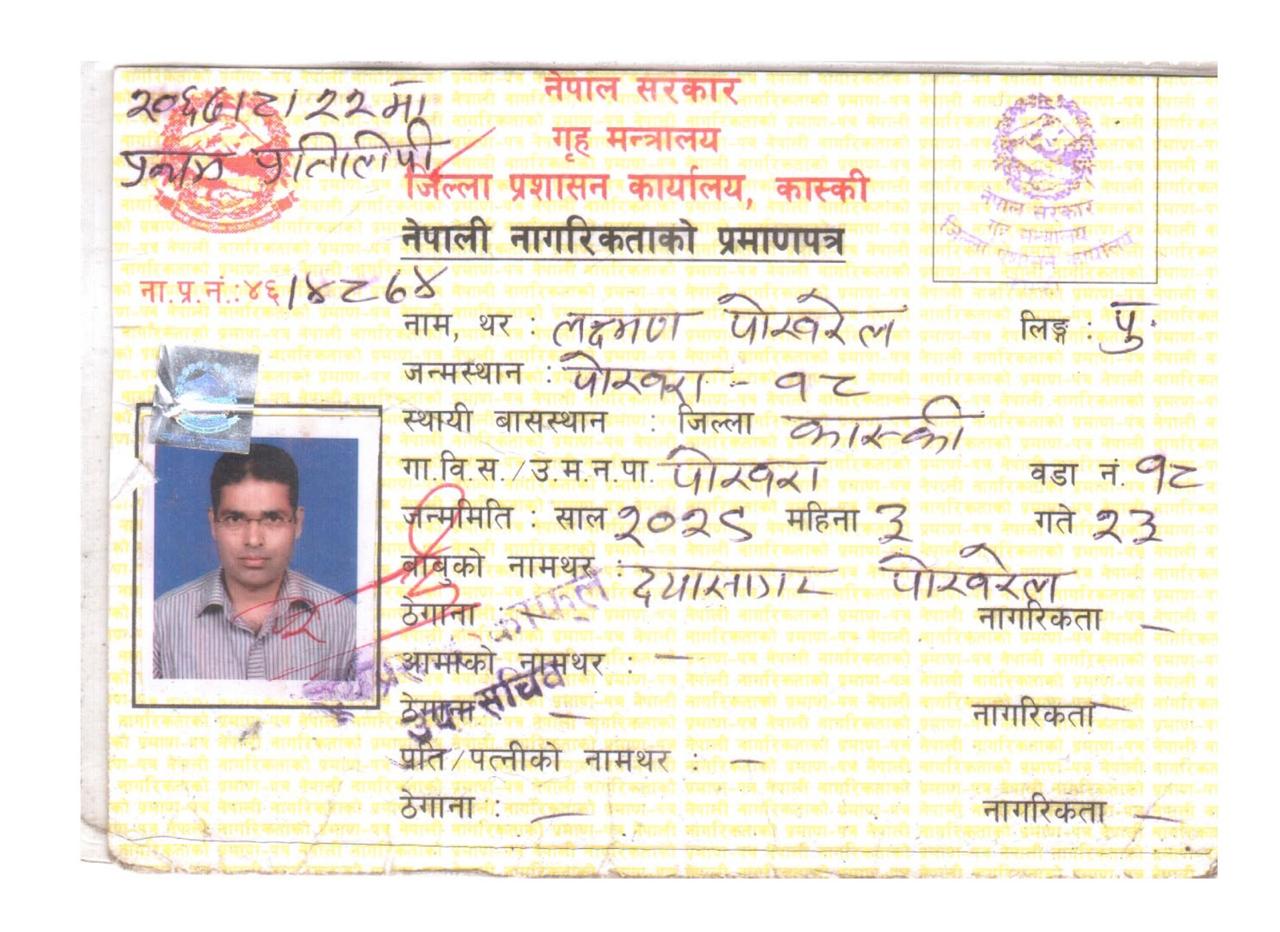 नेपाल सरकार
गृह मन्त्रालय
जिल्ला प्रशासन कार्यालय, कास्की
नेपाली नागरिकताको प्रमाणपत्र
२०६७।८।२२ मा
प्रथम प्रतिलिपी
नेपाल सरकार
गृह मन्त्रालय
जिल्ला प्रशासन कार्यालय
ना.प्र.नं.:४६/४८७४
नाम, थर : लक्ष्मण पोखरेल लिङ्ग : पु.
जन्मस्थान : पोखरा - १८
स्थायी बासस्थान : जिल्ला कास्की
गा.वि.स./उ.म.न.पा. पोखरा वडा नं. १८
जन्ममिति : साल २०२९ महिना ३ गते २३
बाबुको नामथर : दयासागर पोखरेल
ठेगाना : — नागरिकता —
आमाको नामथर : —
ठेगाना — नागरिकता —
पति/पत्नीको नामथर : —
ठेगाना : — नागरिकता —
सचिव